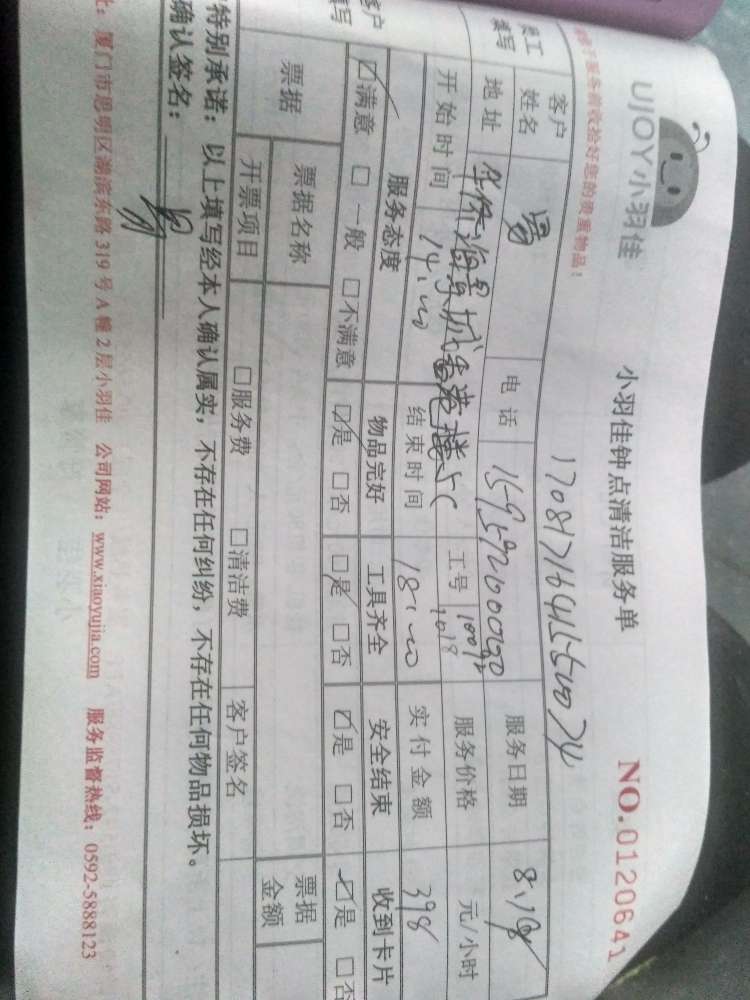 UJOY小羽佳
小羽佳钟点清洁服务单
NO.0120641
服务前收拾好您的贵重物品!
员工
填写
客户
姓名
电话
服务日期
地址
华侨海景城
5C
工号
服务价格
元/小时
开始时间
14:00
结束时间
18:00
实付金额
398
客户
填写
服务态度
物品完好
工具齐全
安全结束
收到卡片
☑满意 □一般 □不满意
☑是 □否
☑是 □否
☑是 □否
☑是 □否
票据
票据名称
票据
金额
开票项目
□服务费 □清洁费
客户签名
特别承诺：以上填写经本人确认属实，不存在任何纠纷，不存在任何物品损坏。
确认签名：
址：厦门市思明区湖滨东路319号A幢2层小羽佳 公司网站：www.xiaoyujia.com 服务监督热线：0592-5888123